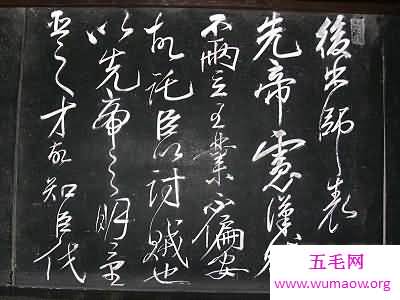 後出師表
先帝慮漢賊
不兩立王業不偏安
故託臣以討賊也
以先帝之明量
臣之才故知臣伐
五毛网
www.wumaow.org